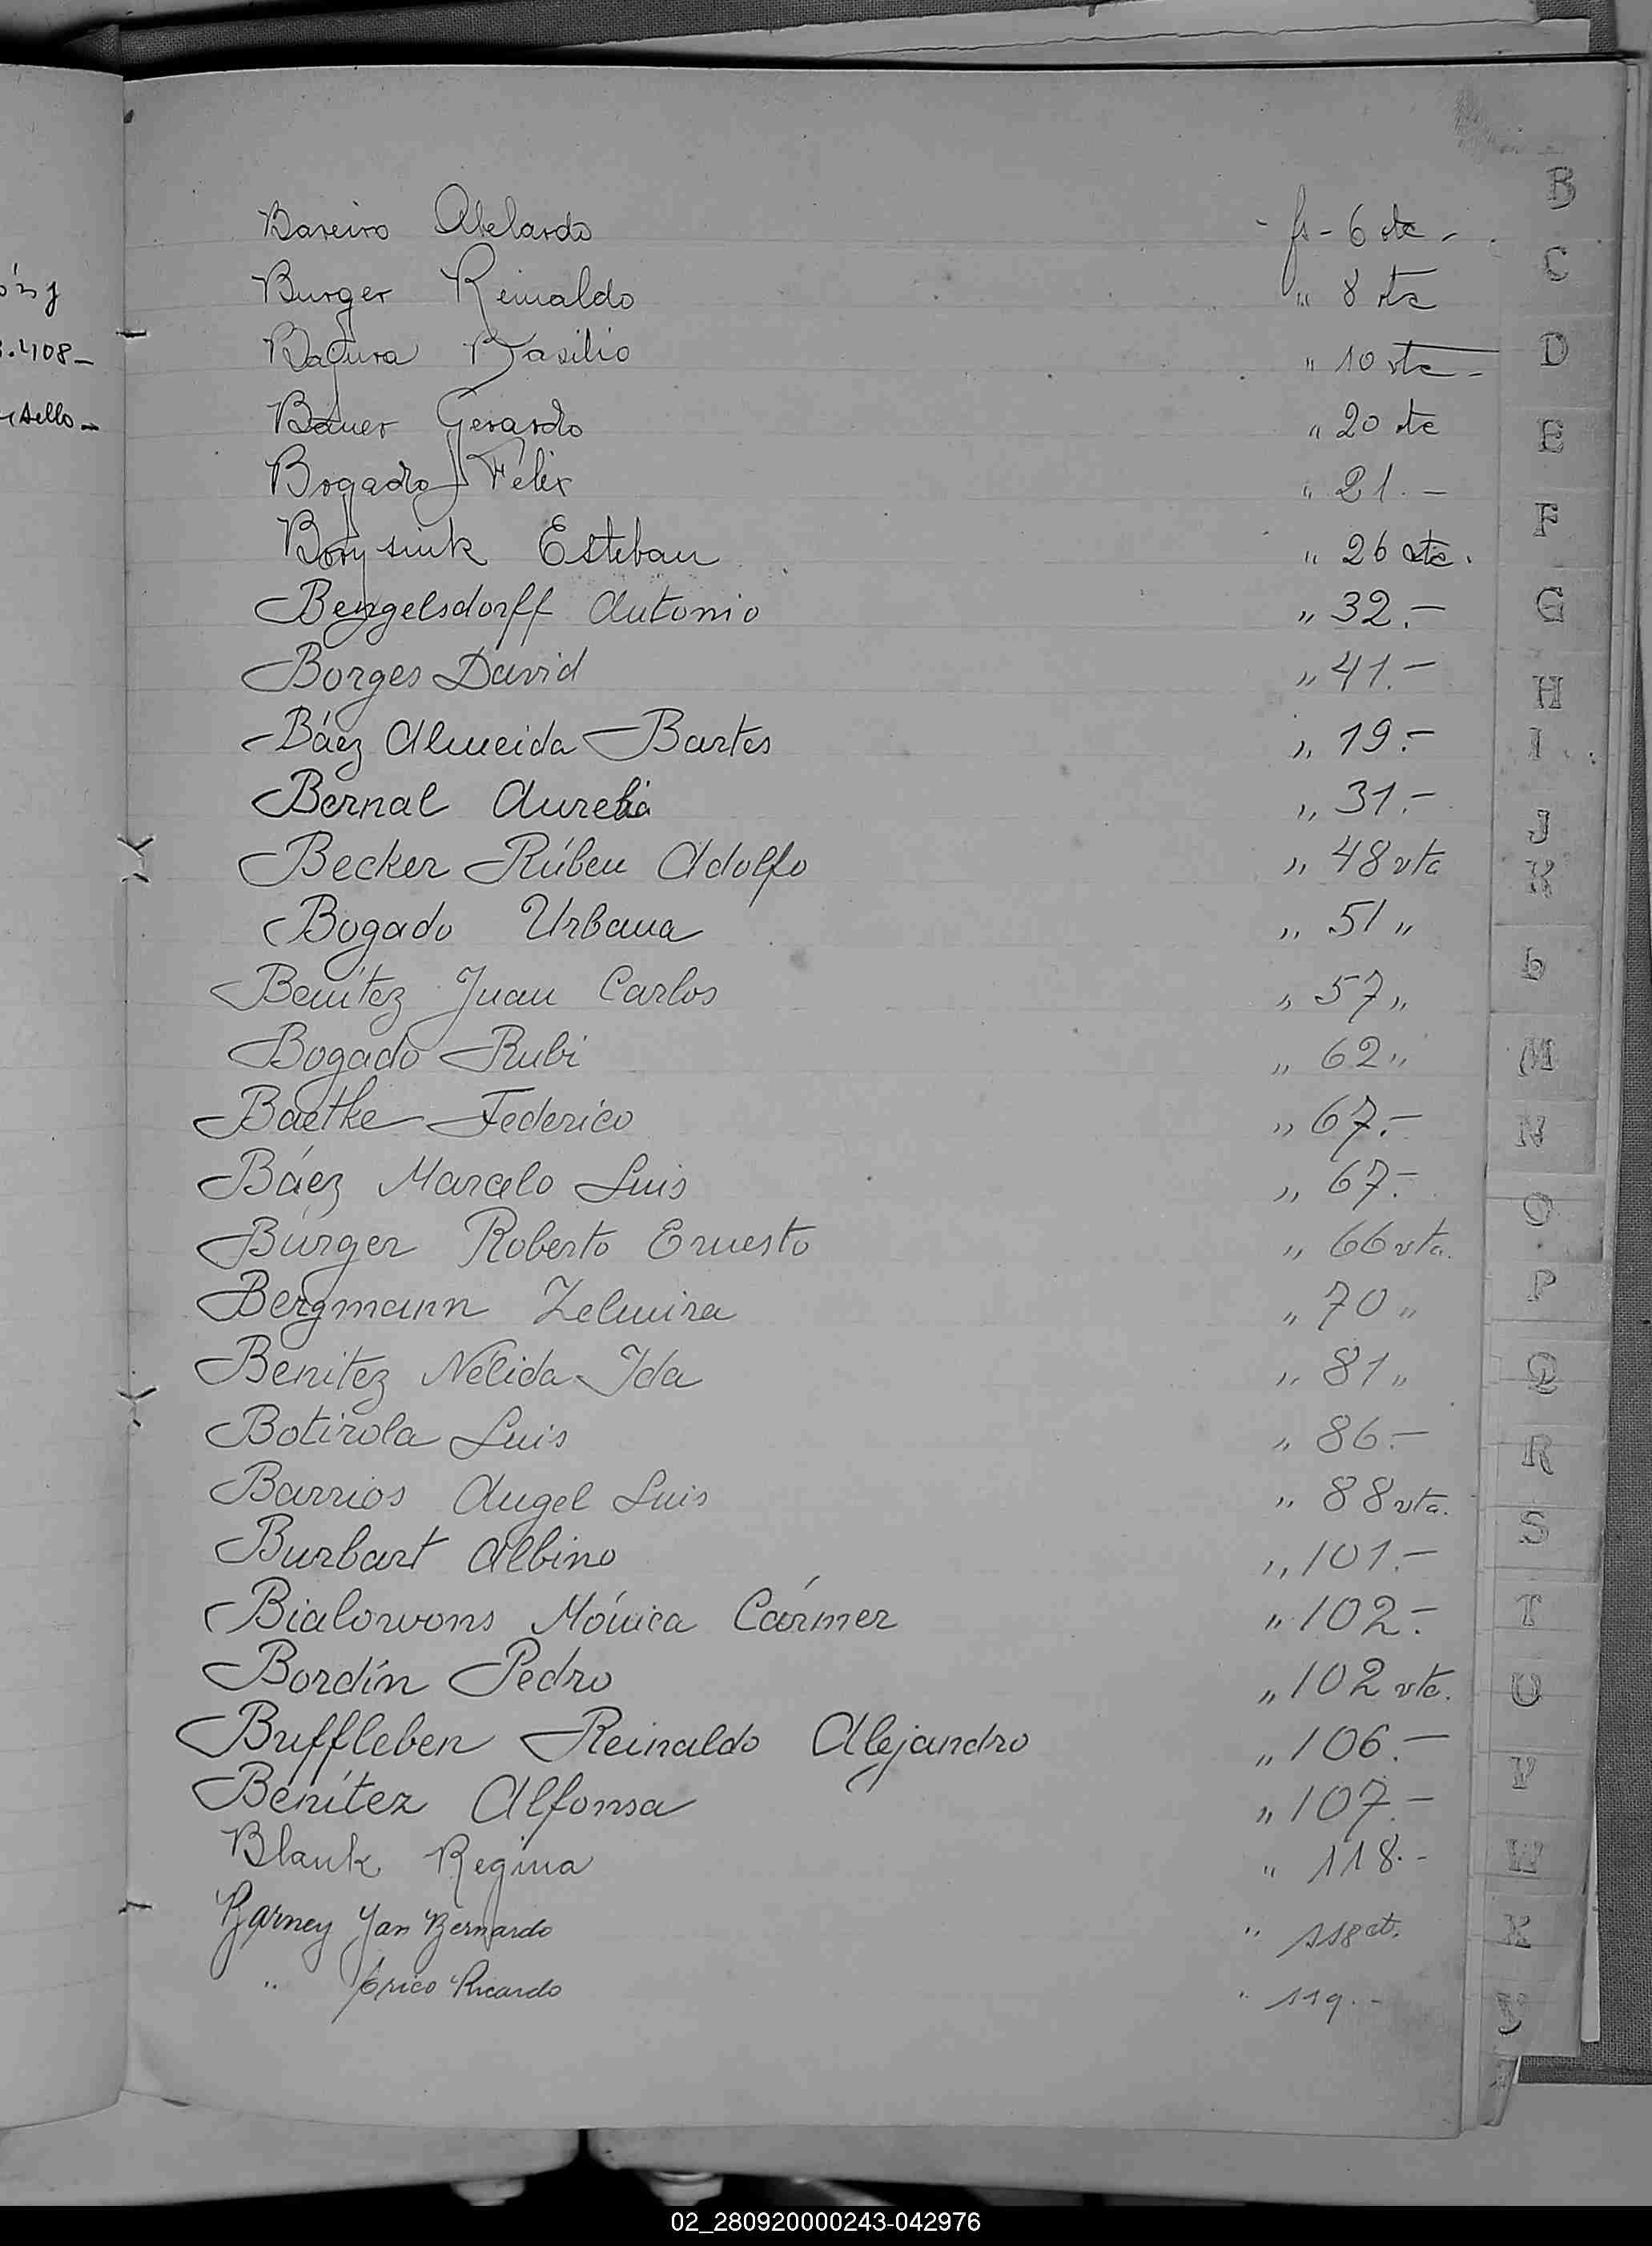 B
Bareiro Abelardo - fs - 6 vta -
Burger Reinaldo " 8 vta
Bagura Basilio " 10 vta -
Bauer Gerardo " 20 vta
Bogado Félix " 21. -
Borysiuk Esteban " 26 vta.
Bengelsdorff Antonio " 32. -
Borges David " 41. -
Báez Almeida Bartes " 19. -
Bernal Aurelia " 31. -
Becker Rúben Adolfo " 48 vta
Bogado Urbana " 51 "
Benítez Juan Carlos " 57 "
Bogado Rubi " 62 "
Baetke Federico " 67. -
Báez Marcelo Luis " 67. -
Bürger Roberto Ernesto " 66 vta.
Bergmann Zelmira " 70 "
Benitez Nélida Ida " 81 "
Botirola Luis " 86. -
Barrios Angel Luis " 88 vta.
Burbart Albino " 101. -
Bialowons Mónica Cármer " 102. -
Bordín Pedro " 102 vta.
Buffleben Reinaldo Alejandro " 106. -
Benítez Alfonsa " 107. -
Blank Regina " 118. -
Barney Jan Bernardo " 118 vt.
" Erico Ricardo " 119. -
.408 -
sello -
C
D
E
F
G
H
I
J
K
L
M
N
O
P
Q
R
S
T
U
V
W
X
Y
02_280920000243-042976